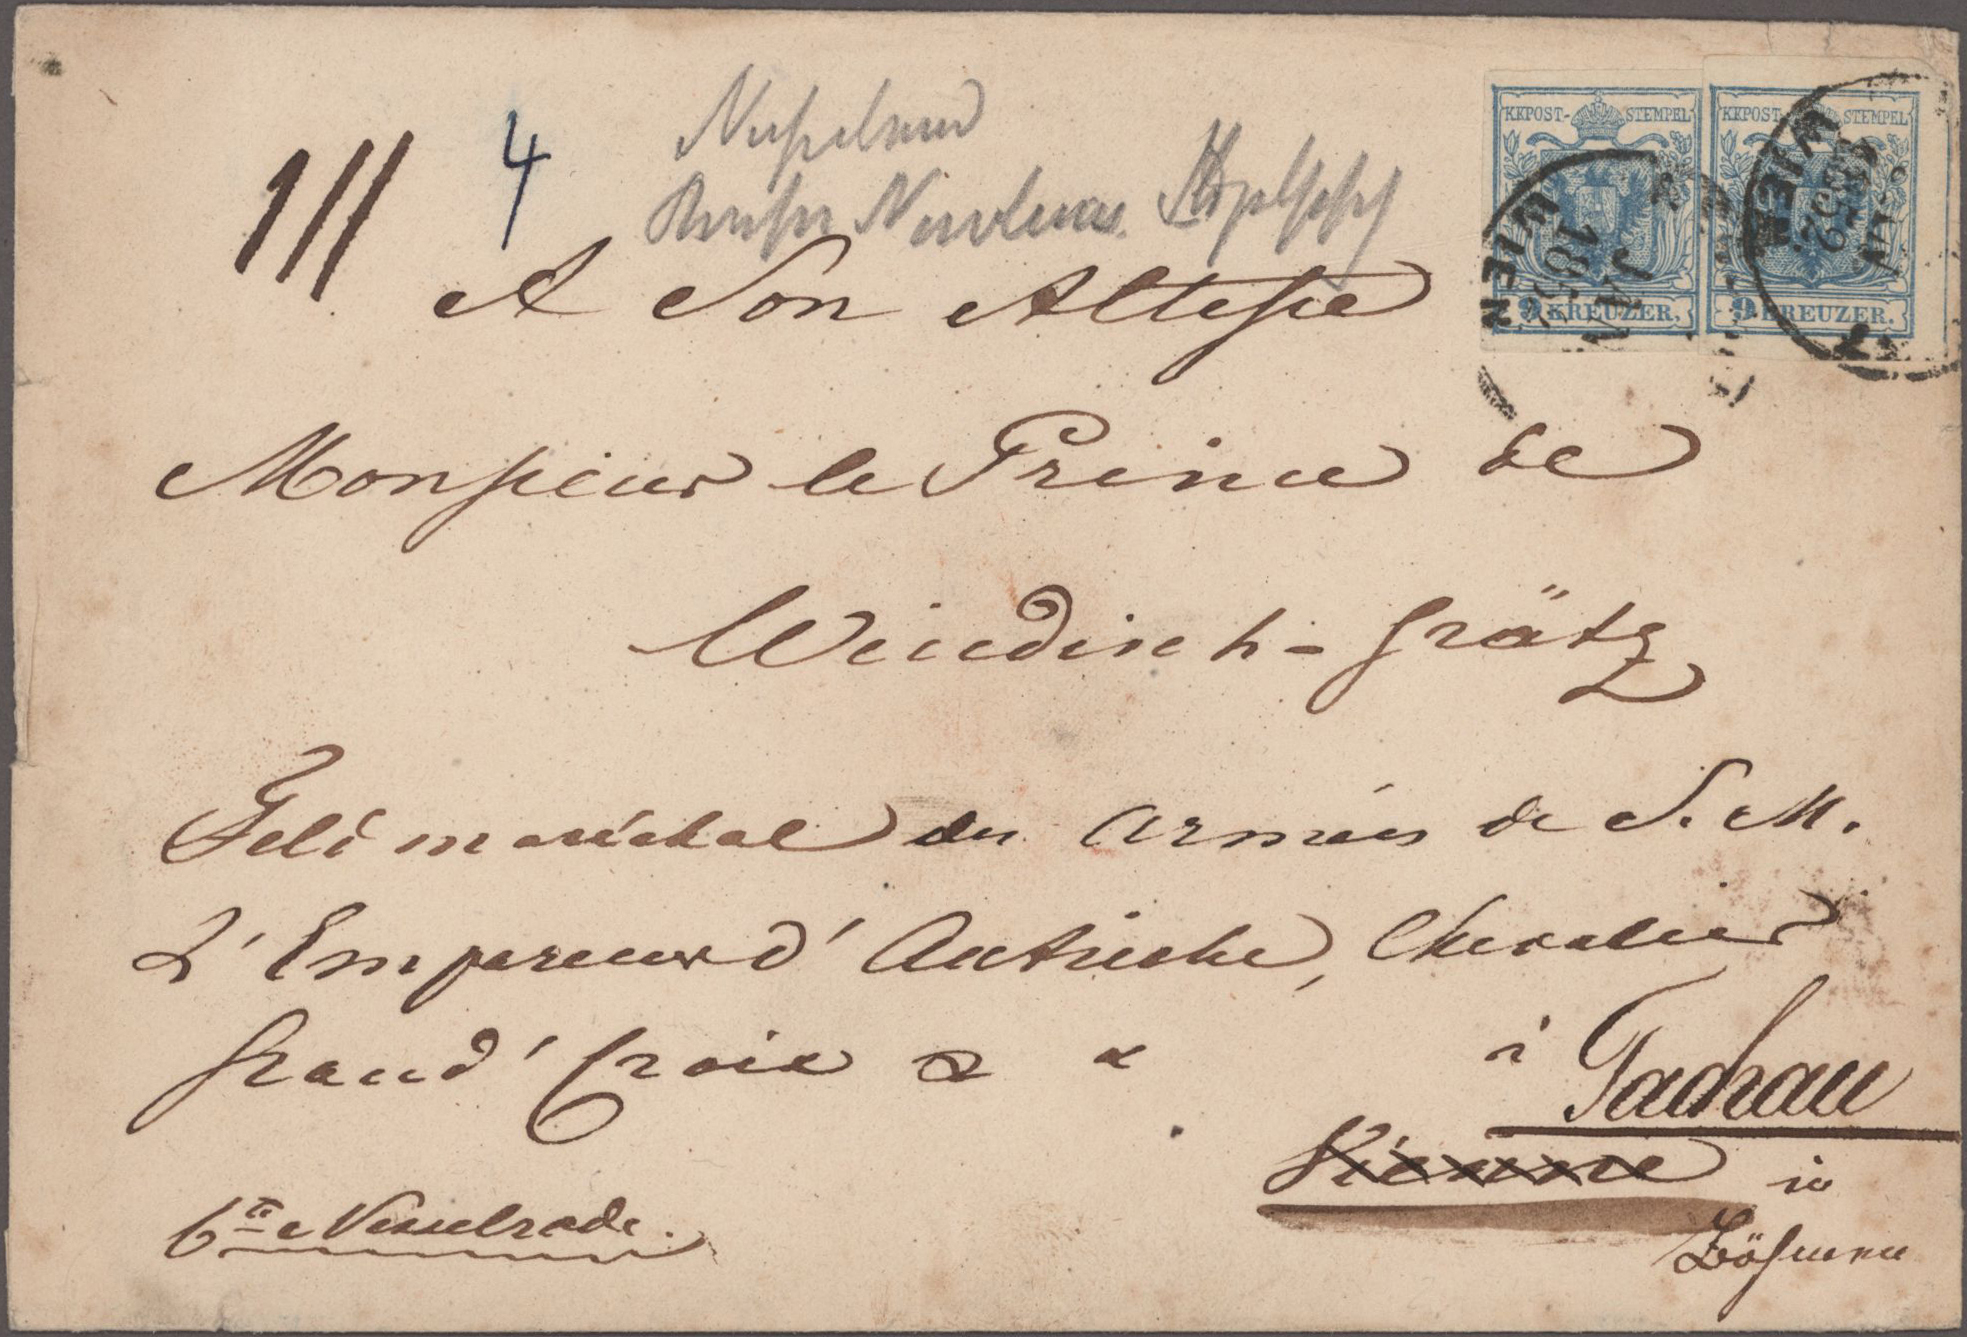 KKPOST-STEMPEL KKPOST-STEMPEL
WIEN JAN 185 WIEN 1852 JAN
9 KREUZER. 9 KREUZER.
III 4
Nesselrod
A Son Altesse
Monsieur le Prince de
Windisch-Grätz
Feld maréchal des Armées de S. M.
L'Empereur d'Autriche, Chevalier
Grand' Croix & &
à Tachau
Vienne in
Böhmen
Cte Nesselrode.